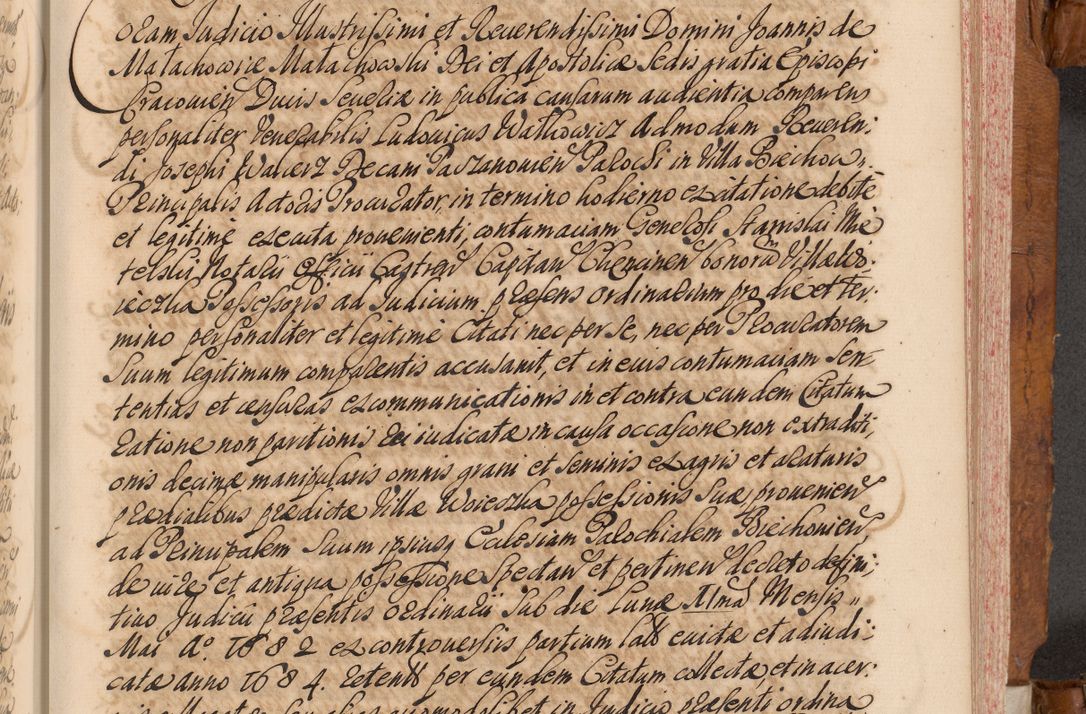 Coram Judicio Illustrissimi et Reverendissimi Domini Joannis de
Małachowice Małachowski Dei et Apostolicæ Sedis gratia Episcopi
Cracovien Ducis Severiæ in publica causarum audientia comparens
personaliter Venerabilis Ludovicus Wathowicz Admodum Reveren:
di Josephi Walierz Decani Paczanovien Parochi in Villa Biechow
Principalis Actoris Procurator, in termino hodierno ex citatione debite
et legitime executa proveniente, contumaciam Generosi Stanislai Mie
telski Notarii Officii Castren Capitan Chencinen bonorū Villæ Wo:
ieczka Possessoris ad Judicium præsens ordinarium pro die et ter:
mino personaliter et legitime Citati nec per se, nec per Procuratorem
Suum legitimum comparentis accusavit, et in eius contumaciam Sen
tentias et censuras excommunicationis in et contra eundem Citatum
ratione non paritionis rei iudicatæ in causa occasione non extraditi,
onis decimæ manipularis omnis grani et seminis ex agris et araturis
prædialibus prædictæ Villæ Woieczka possessionis Suæ provenien
ad Principalem Suum ipsiusq Ecclesiam Parochialem Biechovien,
de iure et antiqua possessione spectan et pertinen decreto defini:
tivo Judicii præsentis ordinarii Sub die Lunæ 11ma Mensis
Mai Aº. 1682 ex controversiis partium lato evictæ et adiudi:
catæ anno 1684. retent per eundem Citatum collectæ, et in acer:
præsenti ordina